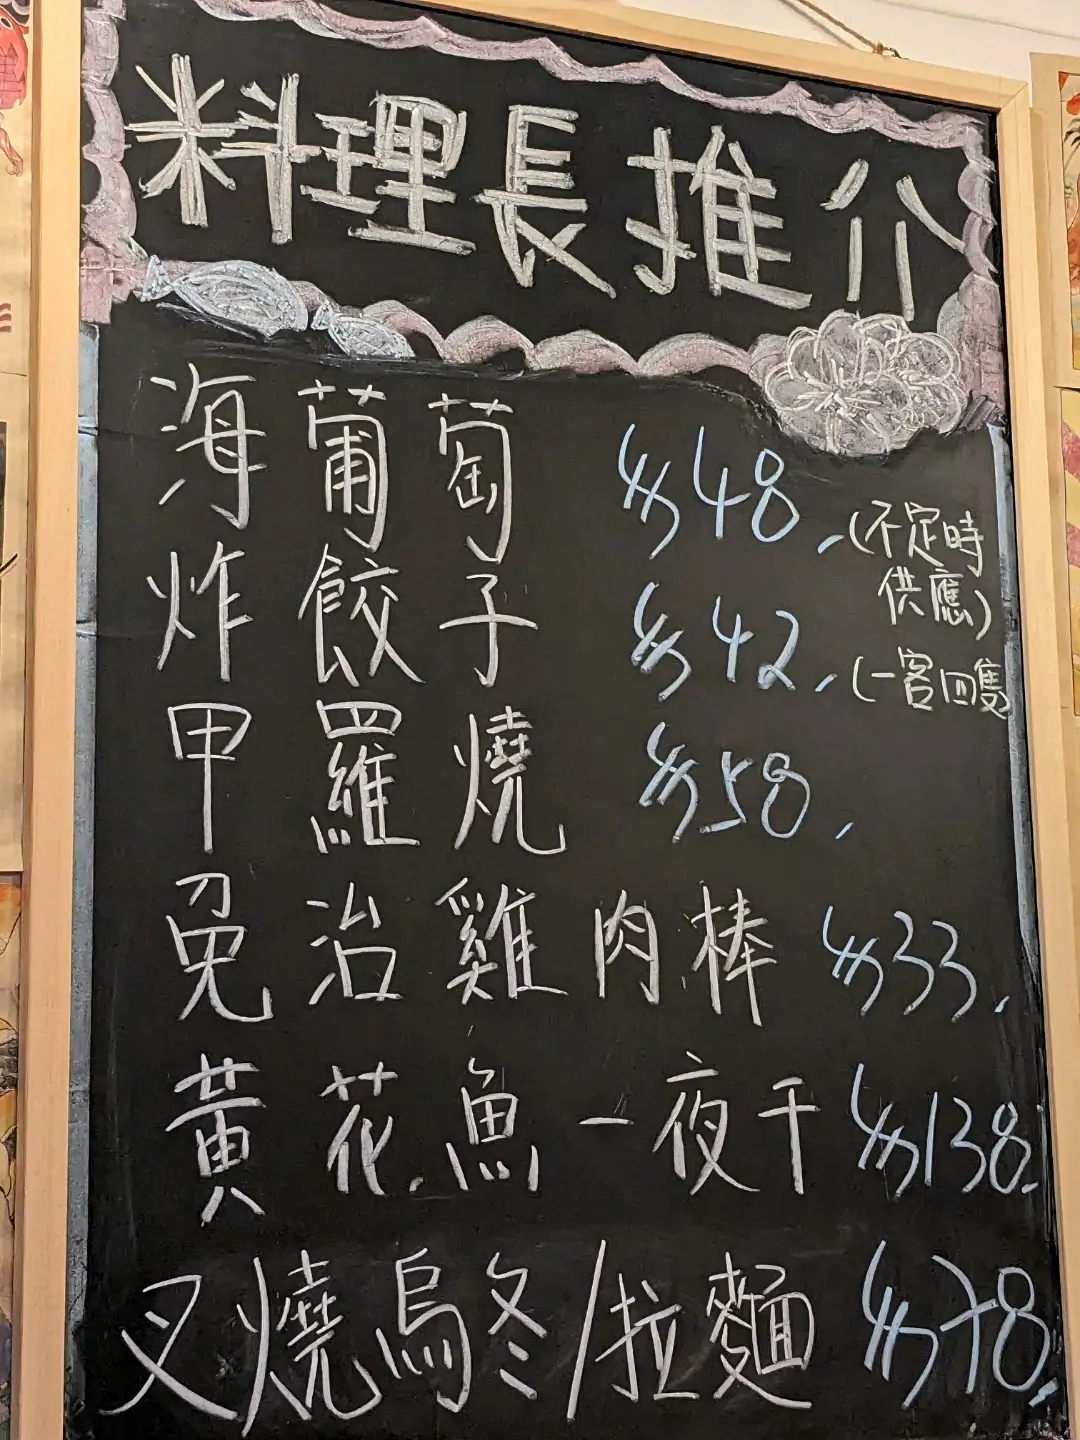 料理長推介
海葡萄 $48,(不定時
供應)
炸餃子 $42,(一客四隻
甲羅燒 $58,
免治雞肉棒 $33,
黃花魚一夜干 $138,
叉燒烏冬/拉麵 $78,